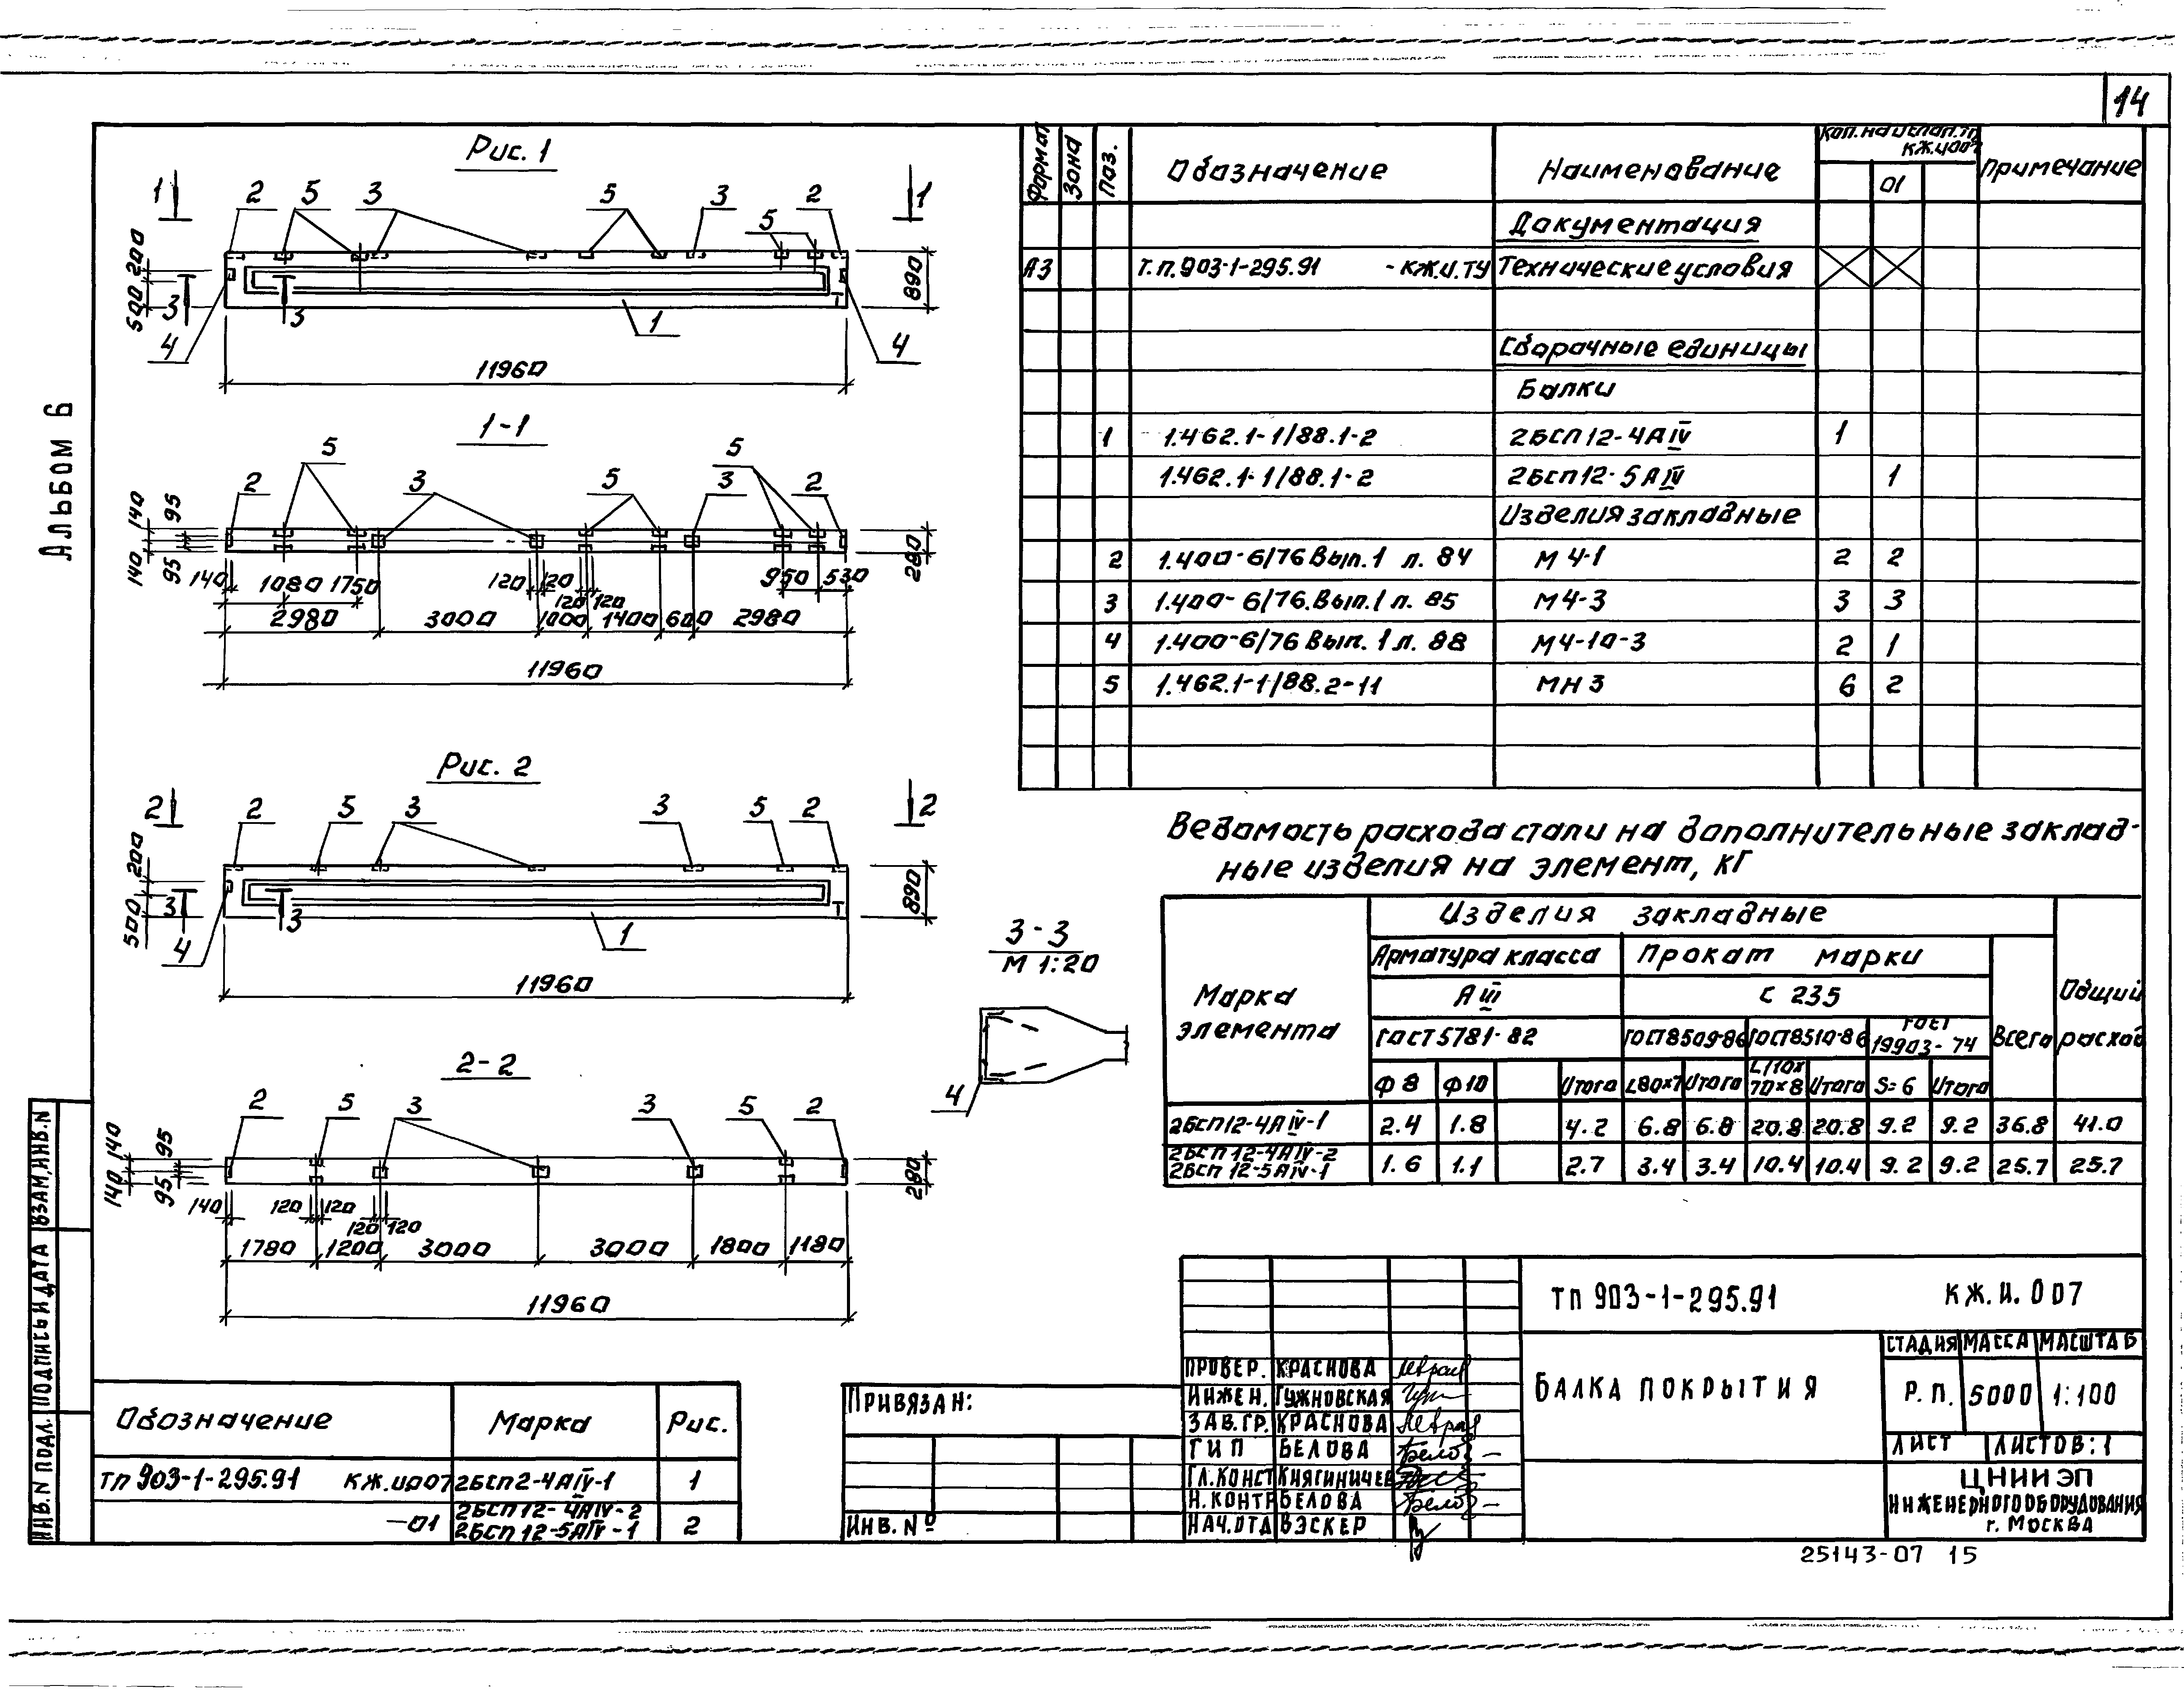 14
Альбом 6
Рис. 1
1 2 5 3 5 3 5 2 1
200
500
3 3
4 1 4
890
11960
1-1
5 5
2 3 5 3 2
140 95
140 95
280
140 1080 1750 120 120 950 530
120 120
2980 3000 1000 1400 600 2980
11960
Рис. 2
2 2 5 3 3 5 2 2
200
500
3 3
4 1
890
11960
3-3
М 1:20
4
2-2
2 5 3 3 5 2
140 95
140 95
280
140 120 120
120 120
1780 1200 3000 3000 1800 1180
11960
Формат Зона Поз. Обозначение Наименование Кол. на исполн. КЖ.И007 Примечание
01
Документация
А3 Т.П.903-1-295.91 -КЖ.И.ТУ Технические условия
Сборочные единицы
Балки
1 1.462.1-1/88.1-2 2БСП12-4АIV 1
1.462.1-1/88.1-2 2БСП12-5АIV 1
Изделия закладные
2 1.400-6/76 Вып.1 л. 84 М 4-1 2 2
3 1.400-6/76.Вып.1 л. 85 М 4-3 3 3
4 1.400-6/76 Вып. 1 л. 88 М4-10-3 2 1
5 1.462.1-1/88.2-11 МН 3 6 2
Ведомость расхода стали на дополнительные заклад-
ные изделия на элемент, кг
Марка элемента Изделия закладные Общий расход
Арматура класса Прокат марки Всего
АIII С 235
ГОСТ 5781-82 ГОСТ8509-86 ГОСТ8510-86 ГОСТ 19903-74
Ф 8 Ф10 Итого L80×7 Итого L110×70×8 Итого S=6 Итого
2БСП12-4АIV-1 2.4 1.8 4.2 6.8 6.8 20.8 20.8 9.2 9.2 36.8 41.0
2БСП 12-4АIV-2
2БСП 12-5АIV-1 1.6 1.1 2.7 3.4 3.4 10.4 10.4 9.2 9.2 25.7 25.7
Обозначение Марка Рис.
ТП 903-1-295.91 КЖ.И007 2БСП2-4АIV-1 1
-01 2БСП12-4АIV-2
2БСП 12-5АIV-1 2
Привязан:
Инв. №
ТП 903-1-295.91 КЖ.И.007
Провер. Краснова
Инжен. Гужновская
Зав.гр. Краснова
ГИП Белова
Гл.конст Княгиничев
Н.контр Белова
Нач.отд Вэскер
Балка покрытия
Стадия Масса Масштаб
Р.П. 5000 1:100
Лист Листов: 1
ЦНИИЭП
инженерного оборудования
г. Москва
25143-07 15
Инв. N подл. Подпись и дата Взам.инв.N